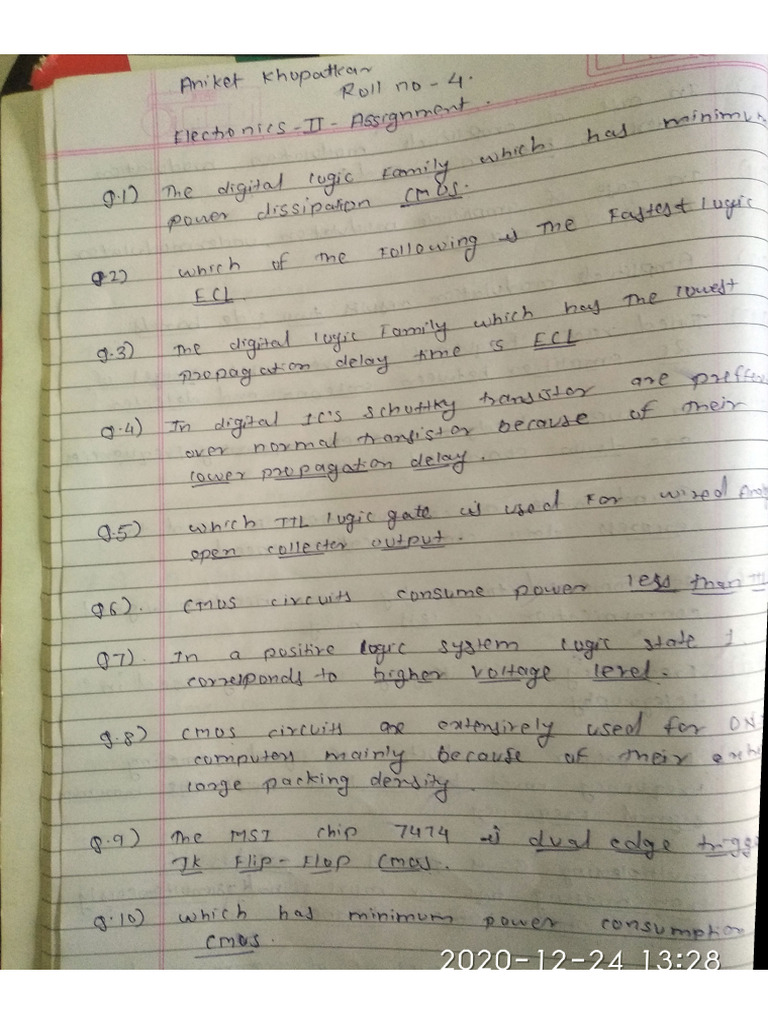 Aniket Khopatkar
Roll no - 4.
Electronics - II - Assignment.
Q.1) The digital logic Family which has minimum
power dissipation CMOS.
Q.2) which of the Following is The Fastest Logic
ECL.
Q.3) The digital logic Family which has The lowest
propagation delay time is ECL
Q.4) In digital IC's schottky transistor are preffere
over normal transistor because of their
lower propagation delay.
Q.5) which TTL logic gate is used For wired
open collecter output.
Q6). CMOS circuits consume power less than
Q7). In a positive logic system logic state 1
corresponds to higher voltage level.
Q.8) CMOS circuits are extensively used for ON
computers mainly because of their
large packing density.
Q.9) The MSI chip 7474 is dual edge trigge
JK Flip-Flop CMOS.
Q.10) which has minimum power consumption
CMOS.
2020-12-24 13:28